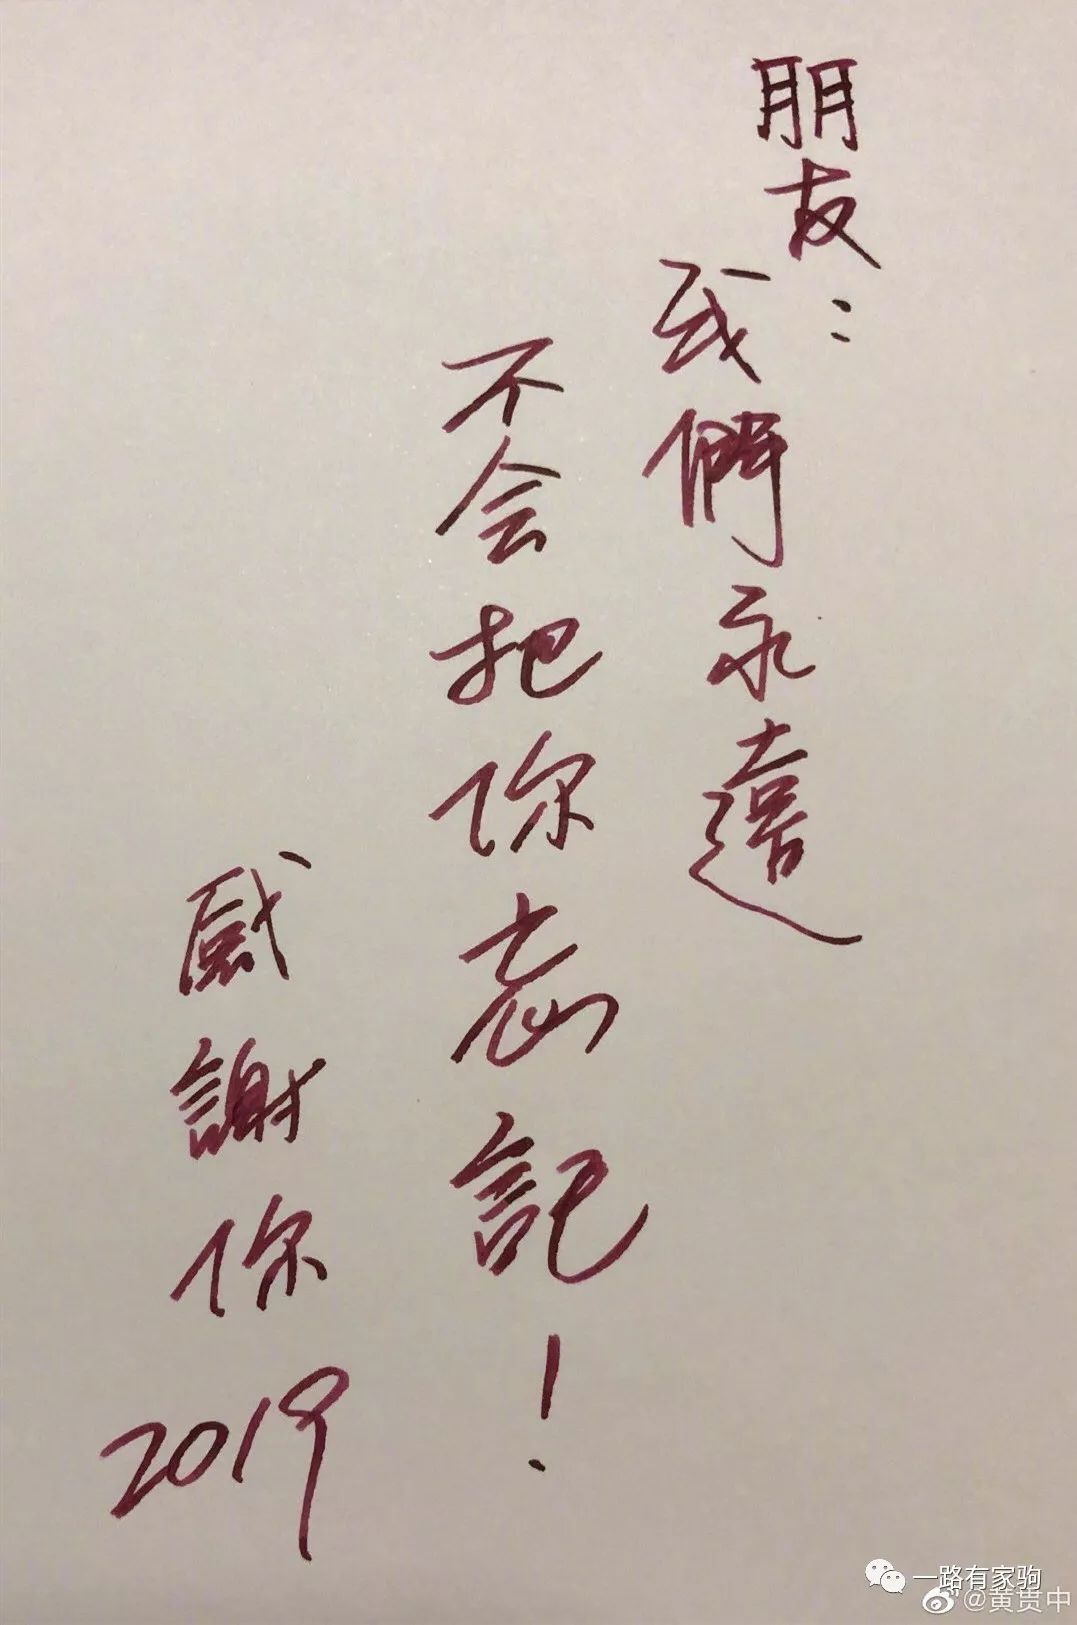 朋友：
我們永遠
不会把你忘記！
感謝你
2019
一路有家驹
@黄贯中